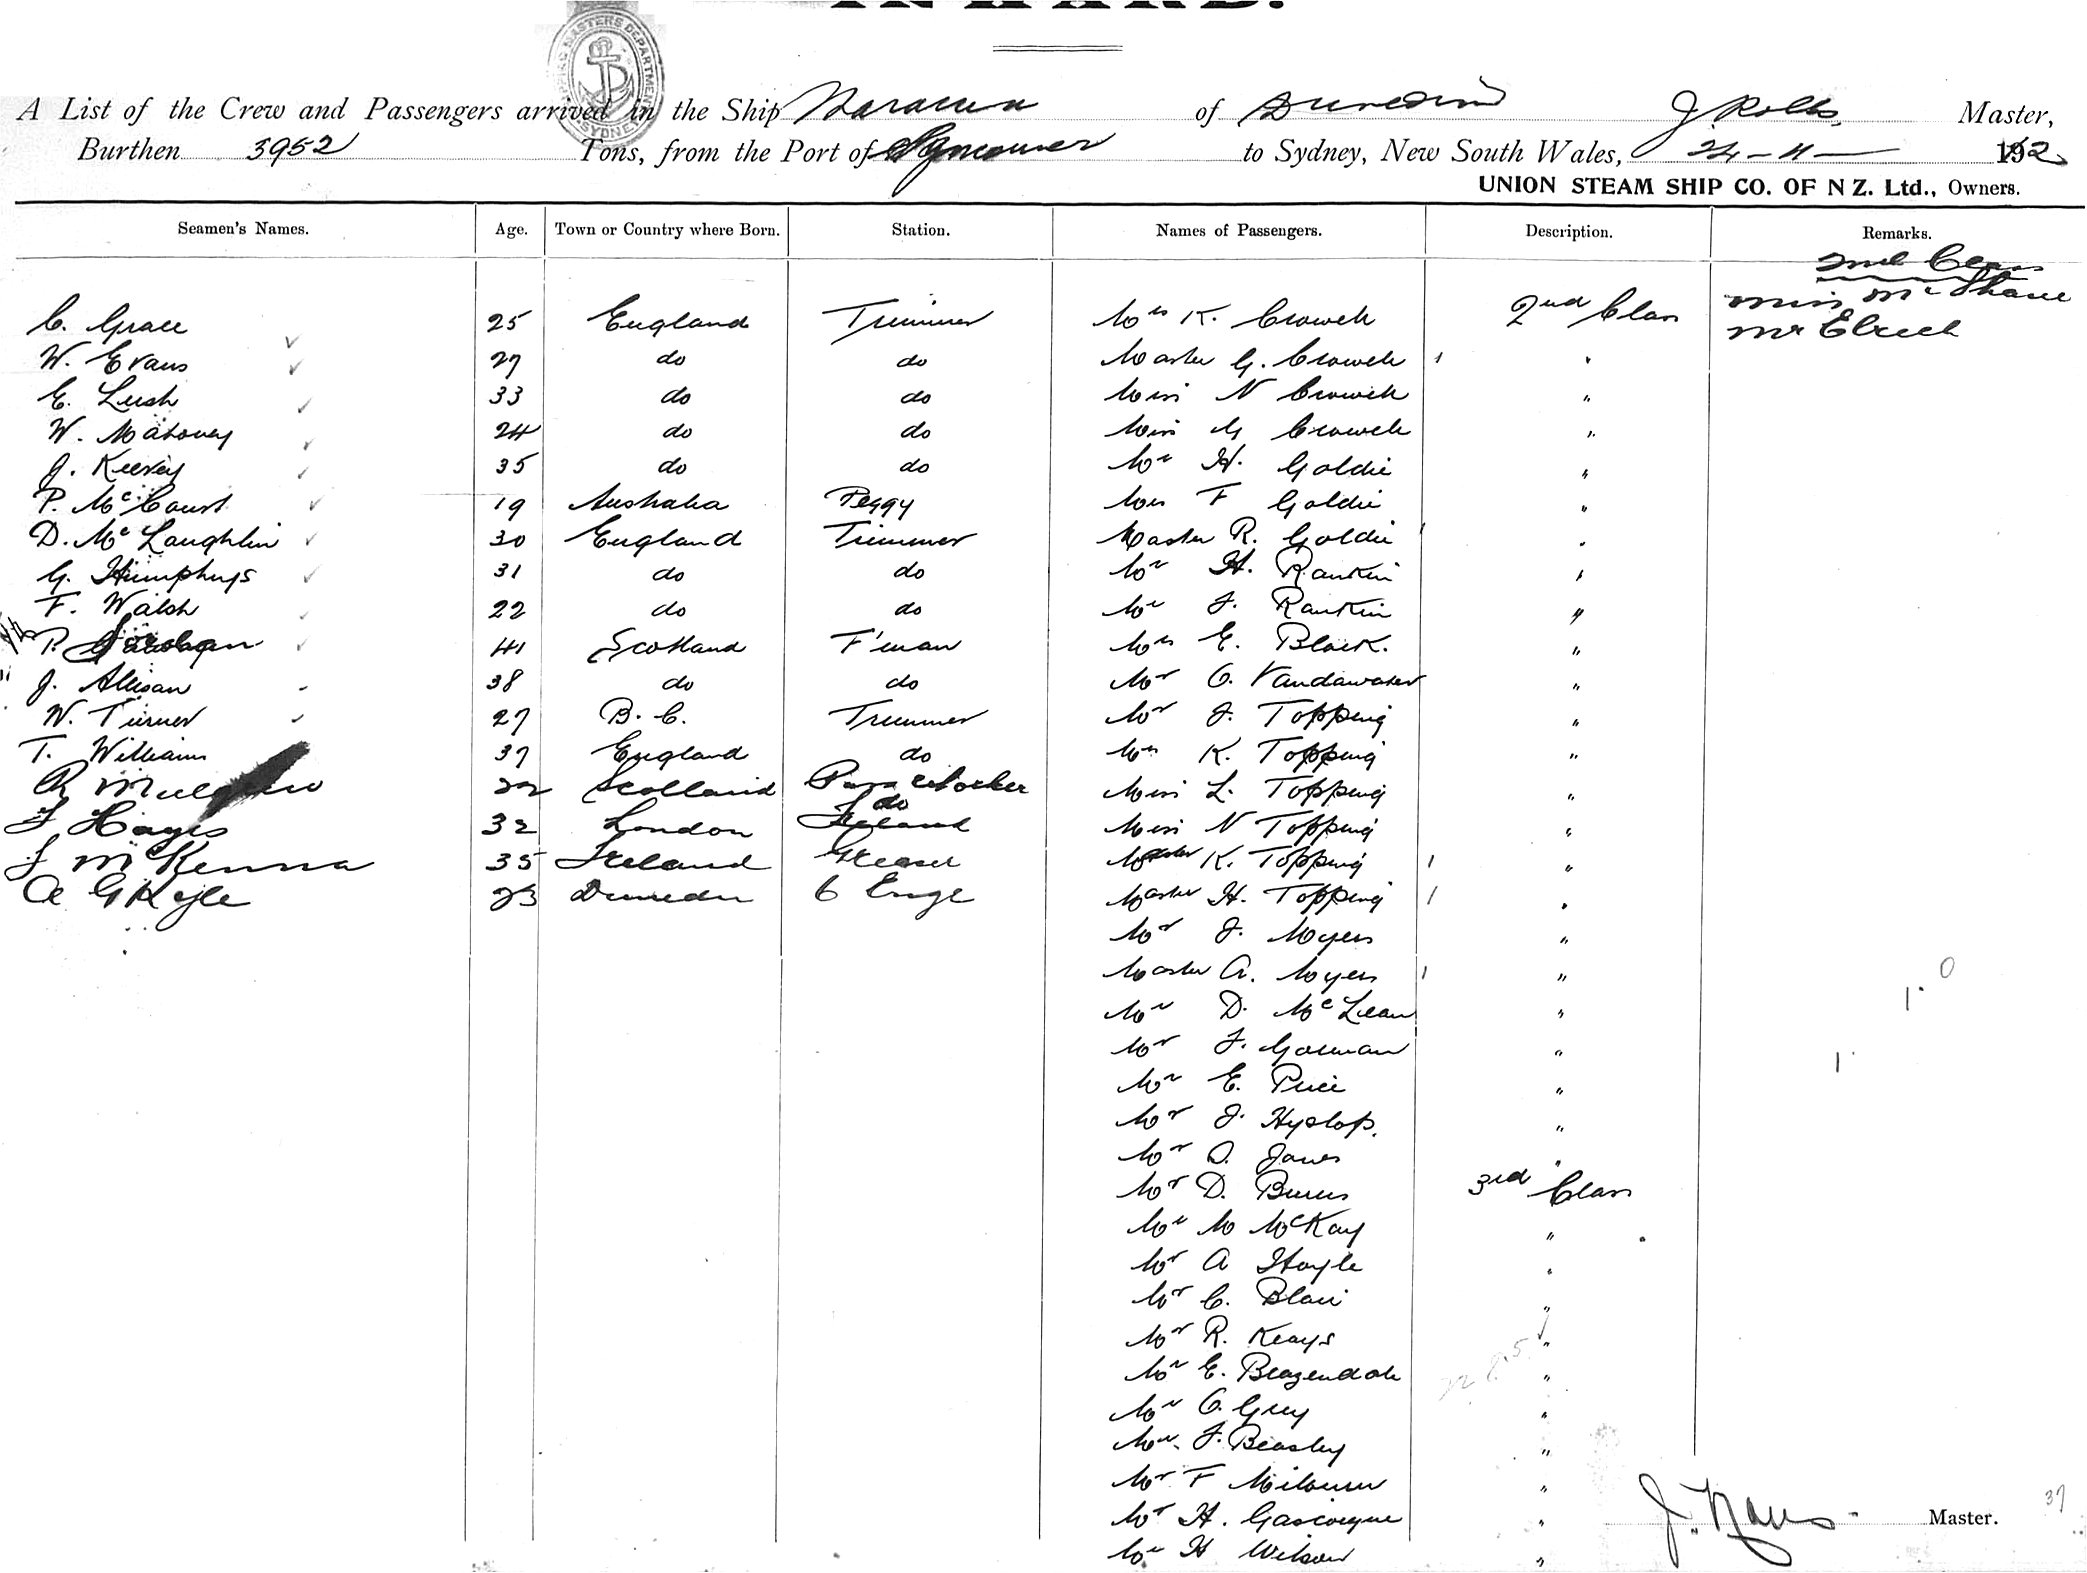 INWARD.
SHIPPING MASTERS DEPARTMENT SYDNEY
A List of the Crew and Passengers arrived in the Ship Marama of Dunedin J. Rolls Master,
Burthen 3952 Tons, from the Port of Vancouver to Sydney, New South Wales, 24-11- 192
UNION STEAM SHIP CO. OF N Z. Ltd., Owners.
Seamen's Names. Age. Town or Country where Born. Station. Names of Passengers. Description. Remarks.
2nd Class
Miss McShane
C. Grace 25 England Trimmer Mrs K. Crowch 2nd Class Mr
W. Evans 27 do do Master G. Crowch 1 "
E. Lush 33 do do Miss N Crowch "
W. Mahoney 24 do do Miss G Crowch "
J. Keevey 35 do do Mr H. Goldie "
P. McCourt 19 Australia Peggy Mrs F Goldie "
D. McLaughlin 30 England Trimmer Master R. Goldie "
G. Humphrys 31 do do Mr H. Rankin "
F. Walsh 22 do do Mr J. Rankin "
P. 41 Scotland F'man Mrs E. Black. "
J. Allison 38 do do Mr C. Vandawater "
W. Turner 27 B. C. Trimmer Mr J. Topping "
T. Williams 37 England do Mrs K. Topping "
R 22 Scotland Miss L. Topping "
J Hayes 32 London do Miss N Topping "
J McKenna 35 Ireland Greaser Master K. Topping 1 "
A G Kyle 23 Dunedin 6 Enge Master H. Topping 1 "
Mr J. Myers "
Master A. Myers 1 "
Mr D. McLean "
Mr J. Gorman "
Mr E. Price "
Mr J. Hyslop. "
Mr D. Jones "
Mr D. Burns 3rd Class
Mr M McKay "
Mr A Hoyle "
Mr C. Blair "
Mr R. Keays "
Mr E. Beazendale "
Mr C. Grey "
Mr J. Beasley "
Mr F Milburn "
Mr H. Gascoigne "
Mr H Wilson "
J. Rolls Master.
37